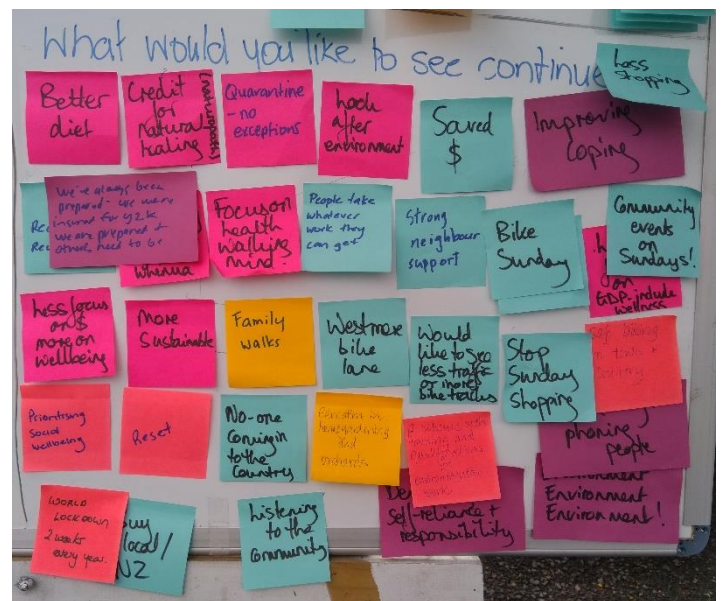 What would you like to see continue
Less
Shopping
Better
diet
Credit
for
Natural
healing
(naturopath)
Quarantine
- no
exceptions
Look
after
environment
Saved
$
Improving
Coping
We've always been
prepared - we were
insured for Y2K
we are prepared +
others need to be
whenua
Focus on
health
walking
mind!
People take
whatever
work they
can get
Strong
neighbour
support
Bike
Sunday
Community
events
on
Sundays!
on
GDP. include
wellness
Less focus
on $
more on
wellbeing
More
Sustainable
Family
walks
Westmere
bike
lane
Would
like to see
less traffic
or more
bike tracks
Stop
Sunday
Shopping
Prioritising
Social
wellbeing
Reset
No-one
Coming in
to the
Country
orchards
and
phoning
people
WORLD
LOCKDOWN
2 weeks
every year
Buy
local/
NZ
Listening
to the
Community
Self-reliance +
responsibility
Environment
Environment
Environment!